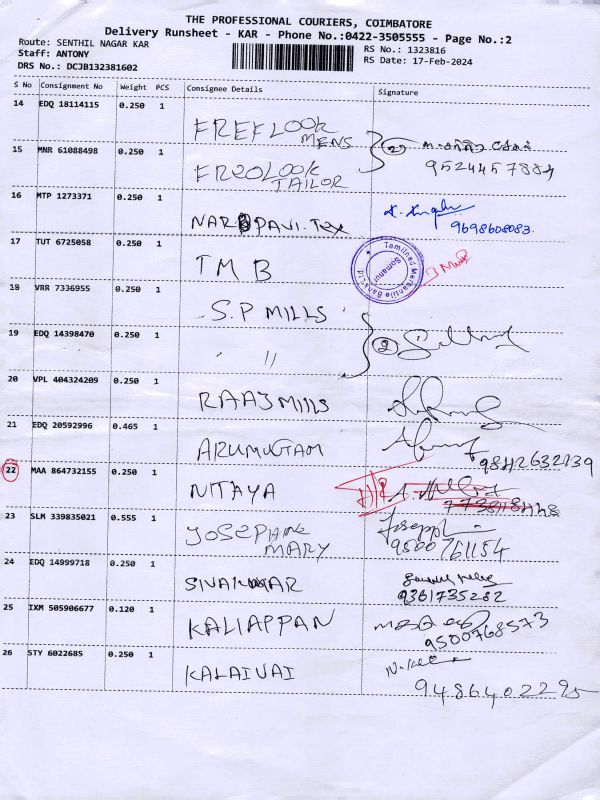 THE PROFESSIONAL COURIERS, COIMBATORE
Delivery Runsheet - KAR - Phone No.:0422-3505555 - Page No.:2
Route: SENTHIL NAGAR KAR
RS No.: 1323816
Staff: ANTONY
RS Date: 17-Feb-2024
DRS No.: DCJB132381602
S No Consignment No Weight PCS Consignee Details Signature
14 EDQ 18114115 0.250 1
FREFLOOK
MENS
(2)
15 MNR 61088498 0.250 1
FREOLOOK
TAILOR
9524457884
16 MTP 1273371 0.250 1
PAVI. Tex
9698608083.
17 TUT 6725058 0.250 1
TMB
Tamilnad Mercantile Bank Ltd
Somanur
18 VRR 7336955 0.250 1
S.P MILLS
19 EDQ 14398470 0.250 1
"
(2)
20 VPL 404324209 0.250 1
RAAJ MILLS
21 EDQ 20592996 0.465 1
ARUMUGAM
9842632239
22 MAA 864732155 0.250 1
NITAYA
23 SLM 339835021 0.555 1
JOSEPHINE
MARY
Joseph
9500761154
24 EDQ 14999718 0.250 1
SIVAKUMAR
9361735282
25 IXM 505906677 0.120 1
KALIAPPAN
9500768573
26 STY 6022685 0.250 1
KALAIVAI
9486402295